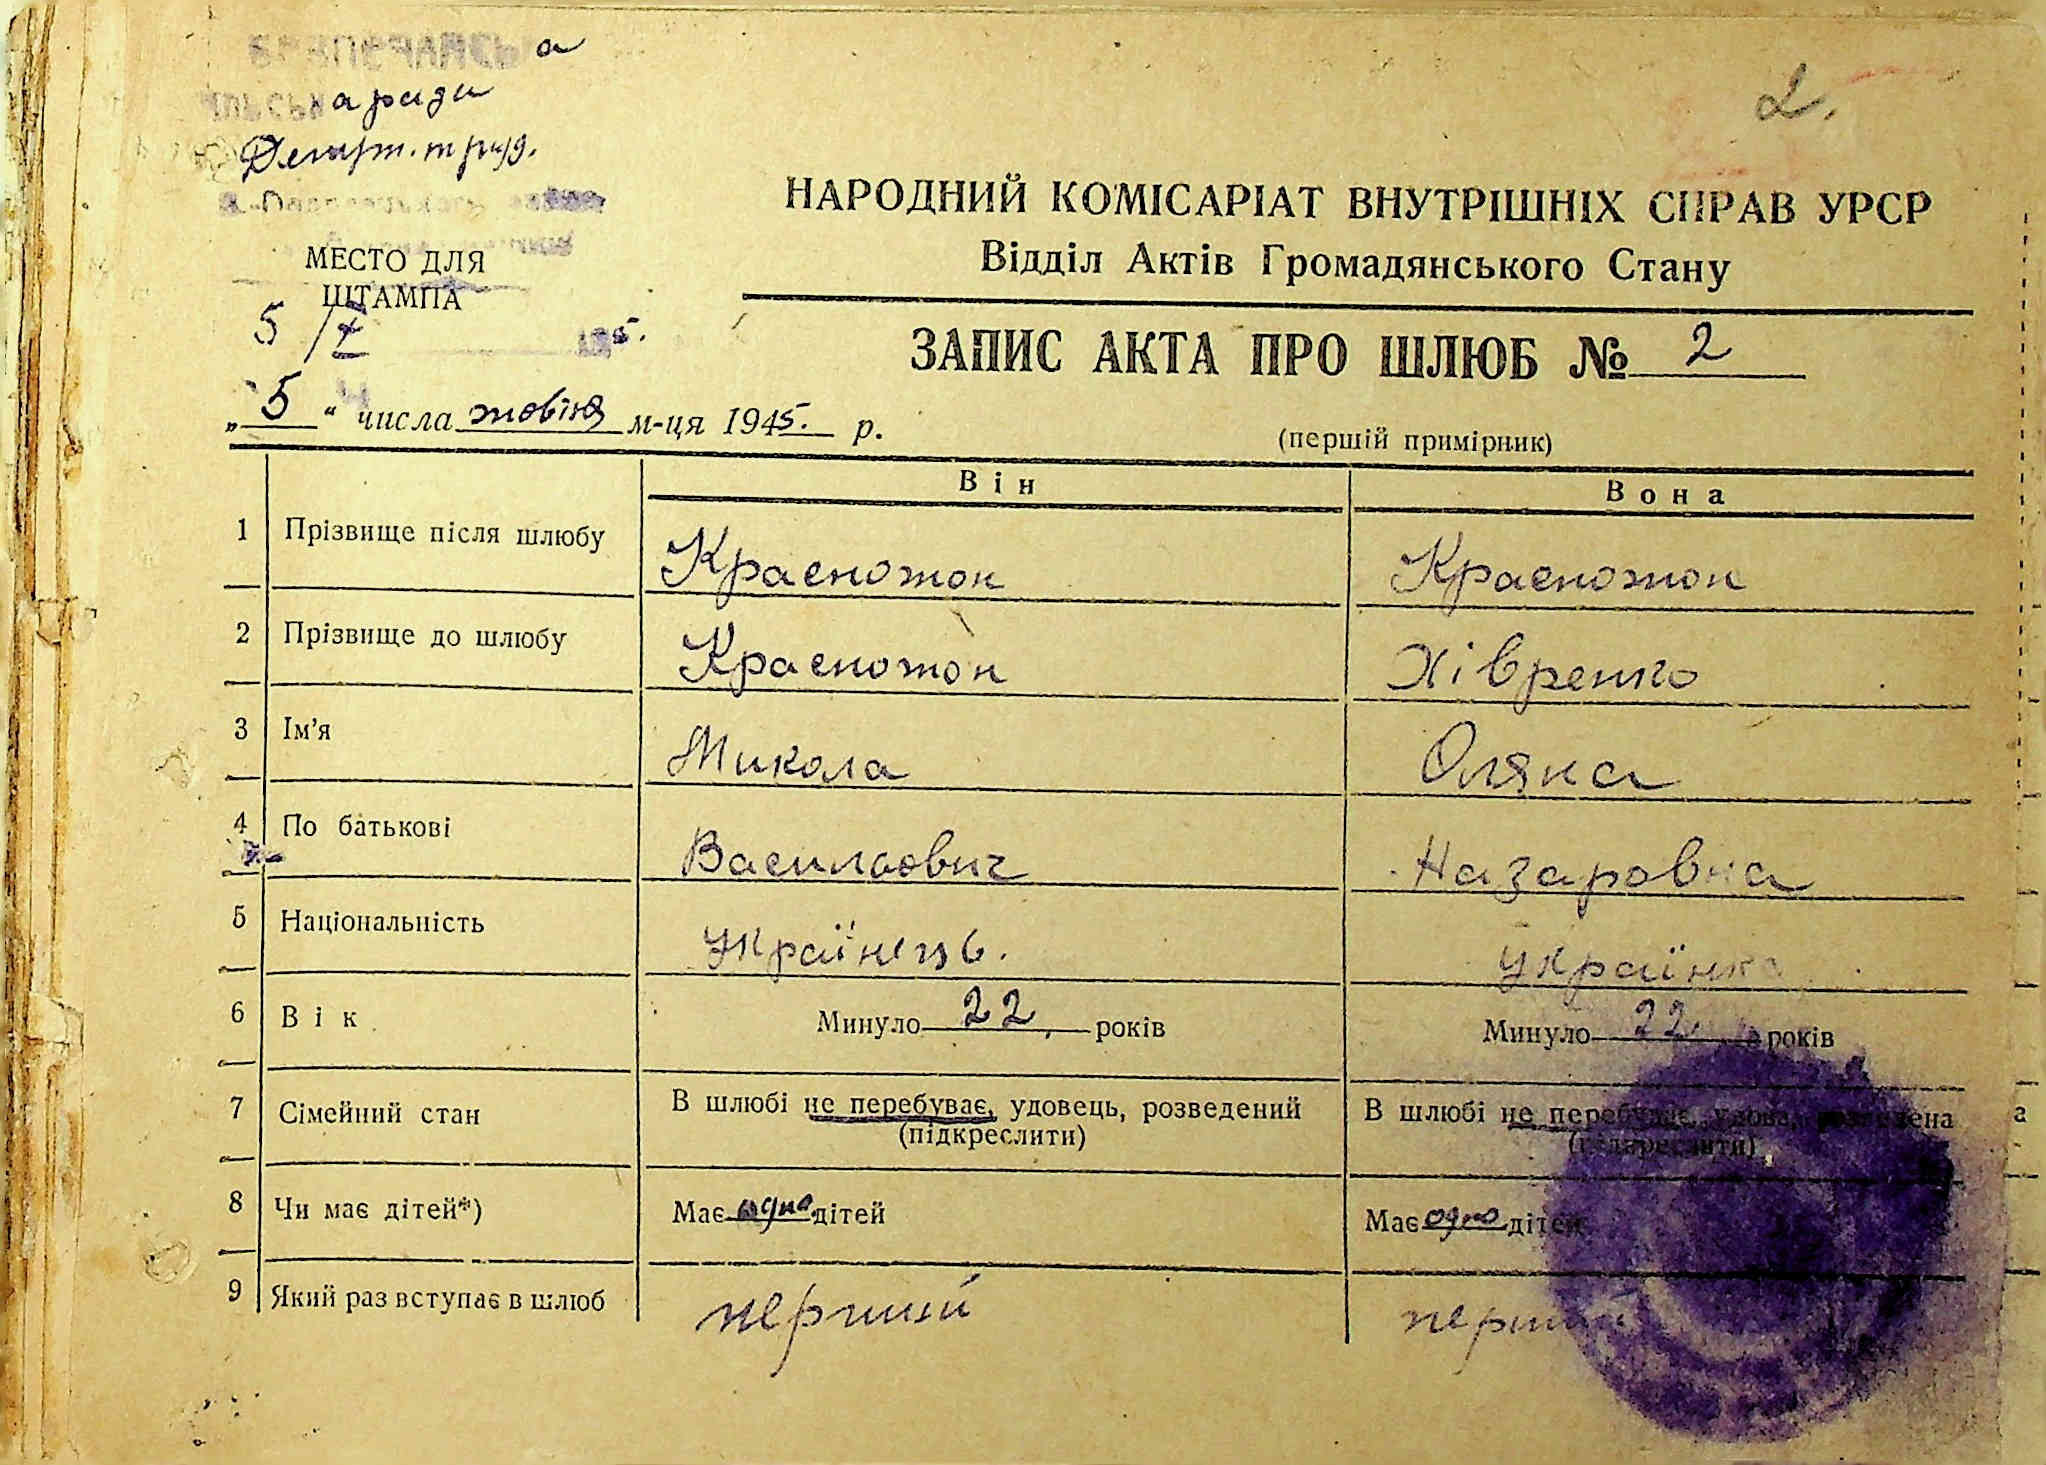 а
а рада
2.
НАРОДНИЙ КОМІСАРІАТ ВНУТРІШНІХ СПРАВ УРСР
Відділ Актів Громадянського Стану
МЕСТО ДЛЯ
ШТАМПА
5/X 5.
ЗАПИС АКТА ПРО ШЛЮБ № 2
„5“ числа жовтня м-ця 1945. р.
(першій примірник)
Він Вона
1 Прізвище після шлюбу Красножон Красножон
2 Прізвище до шлюбу Красножон Хівренко
3 Ім'я Микола Оляна
4 По батькові Васильович Назаровна
5 Національність Українець. Українка
6 Вік Минуло 22 років Минуло 22 років
7 Сімейний стан В шлюбі не перебуває, удовець, розведений В шлюбі не перебуває, удова, розведена
(підкреслити) (підкреслити)
8 Чи має дітей*) Має одно дітей Має одно дітей
9 Який раз вступає в шлюб перший перший